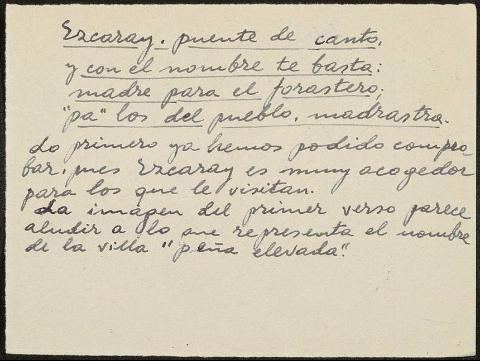 Ezcaray, puente de canto,
y con el nombre te basta:
madre para el forastero;
"pa" los del pueblo, madrastra.
Lo primero ya hemos podido compro-
bar, pues Ezcaray es muy acogedor
para los que le visitan.
La imagen del primer verso parece
aludir a lo que representa el nombre
de la villa "peña elevada".